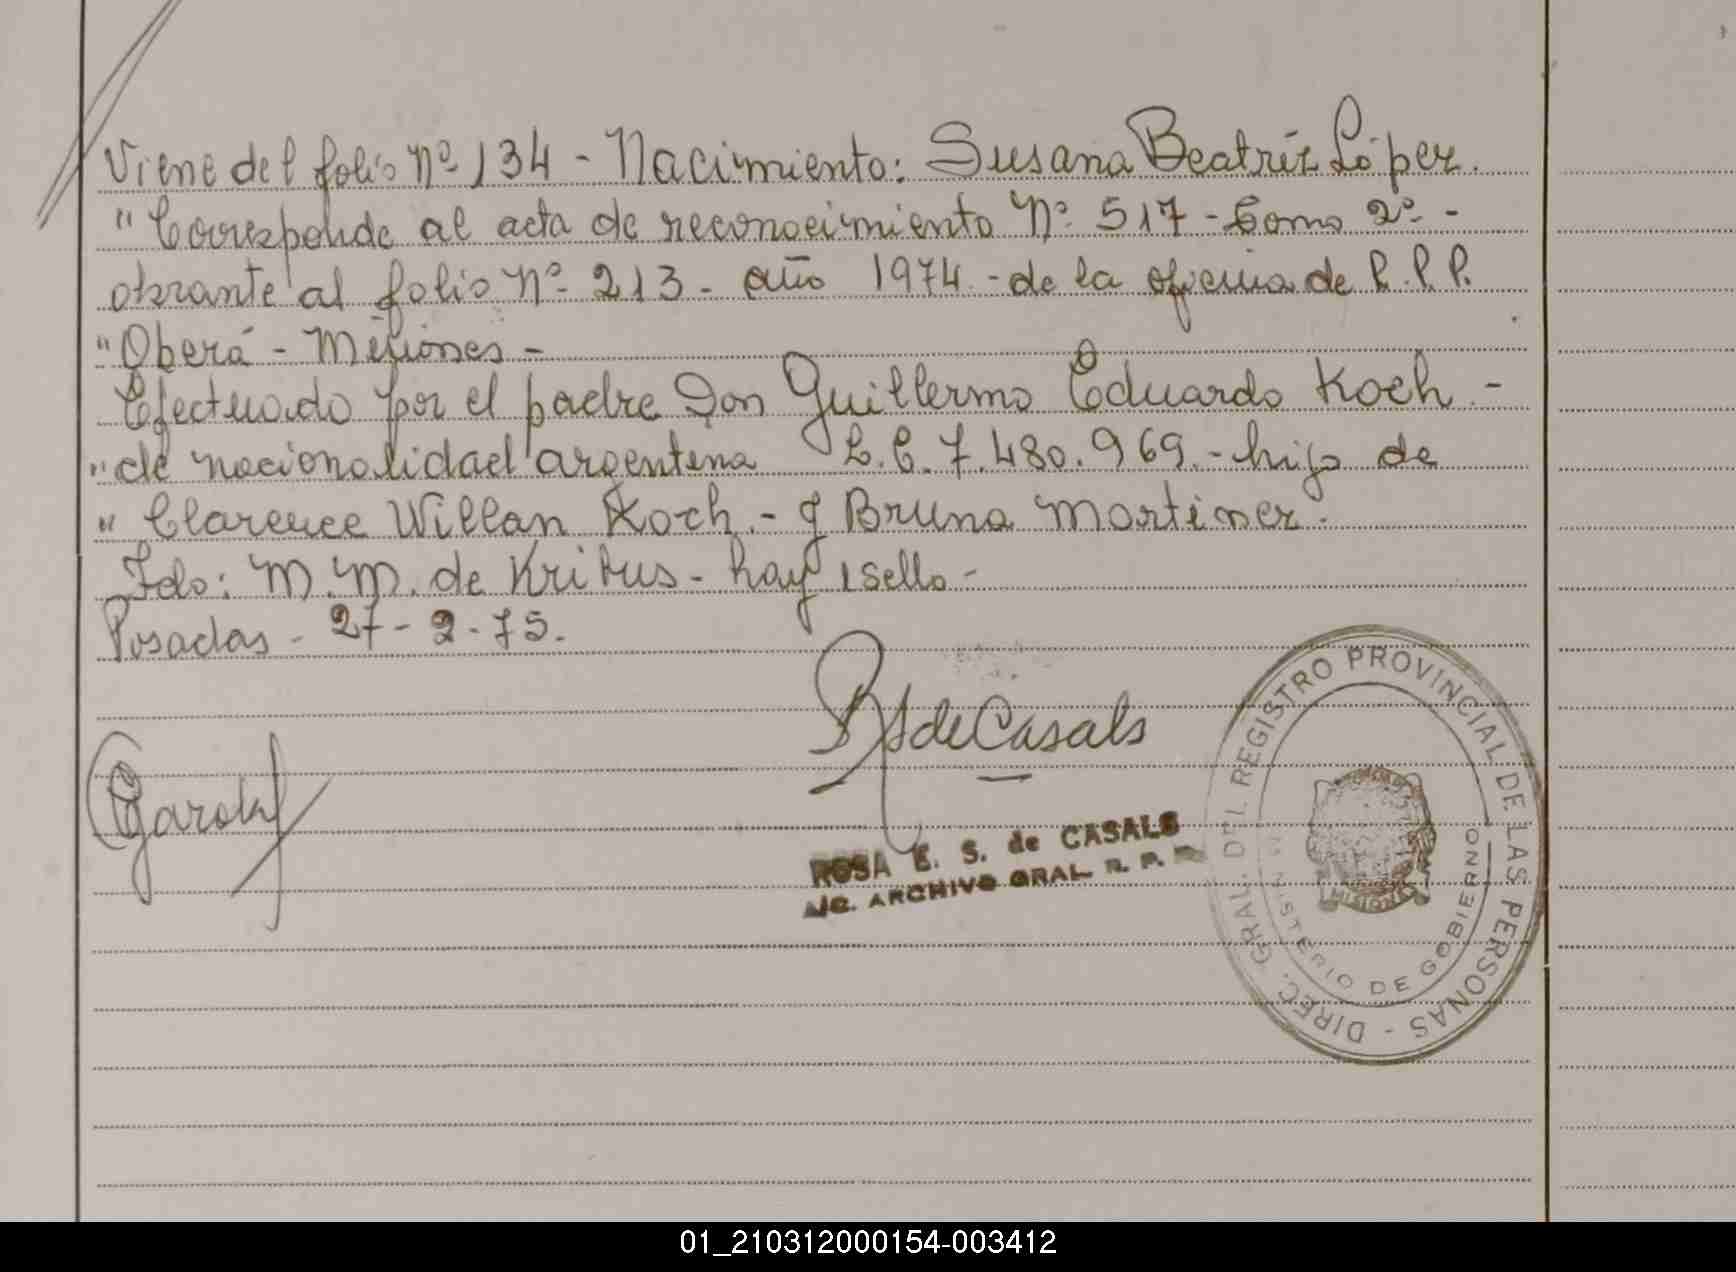 Viene del folio Nº 134 - Nacimiento: Susana Beatriz López.
"Corresponde al acta de reconocimiento Nº 517 - Tomo 2º -
obrante al folio Nº 213 - año 1974 - de la oficina de R.P.P.
"Oberá - Misiones -
Efectuado por el padre Don Guillermo Eduardo Koch. -
"de nacionalidad argentina L.E. 7.480.969. - hijo de
" Clarence Willan Koch. - y Bruna Martinez.
Fdo: M.M. de Kritus - hay 1 sello -
Posadas - 27 - 2 - 75.
RS de Casals
ROSA E. S. de CASALS
A/C. ARCHIVO GRAL R. P. P.
DIREC. GRAL. DEL REGISTRO PROVINCIAL DE LAS PERSONAS -
MINISTERIO DE GOBIERNO
MISIONES
01_210312000154-003412